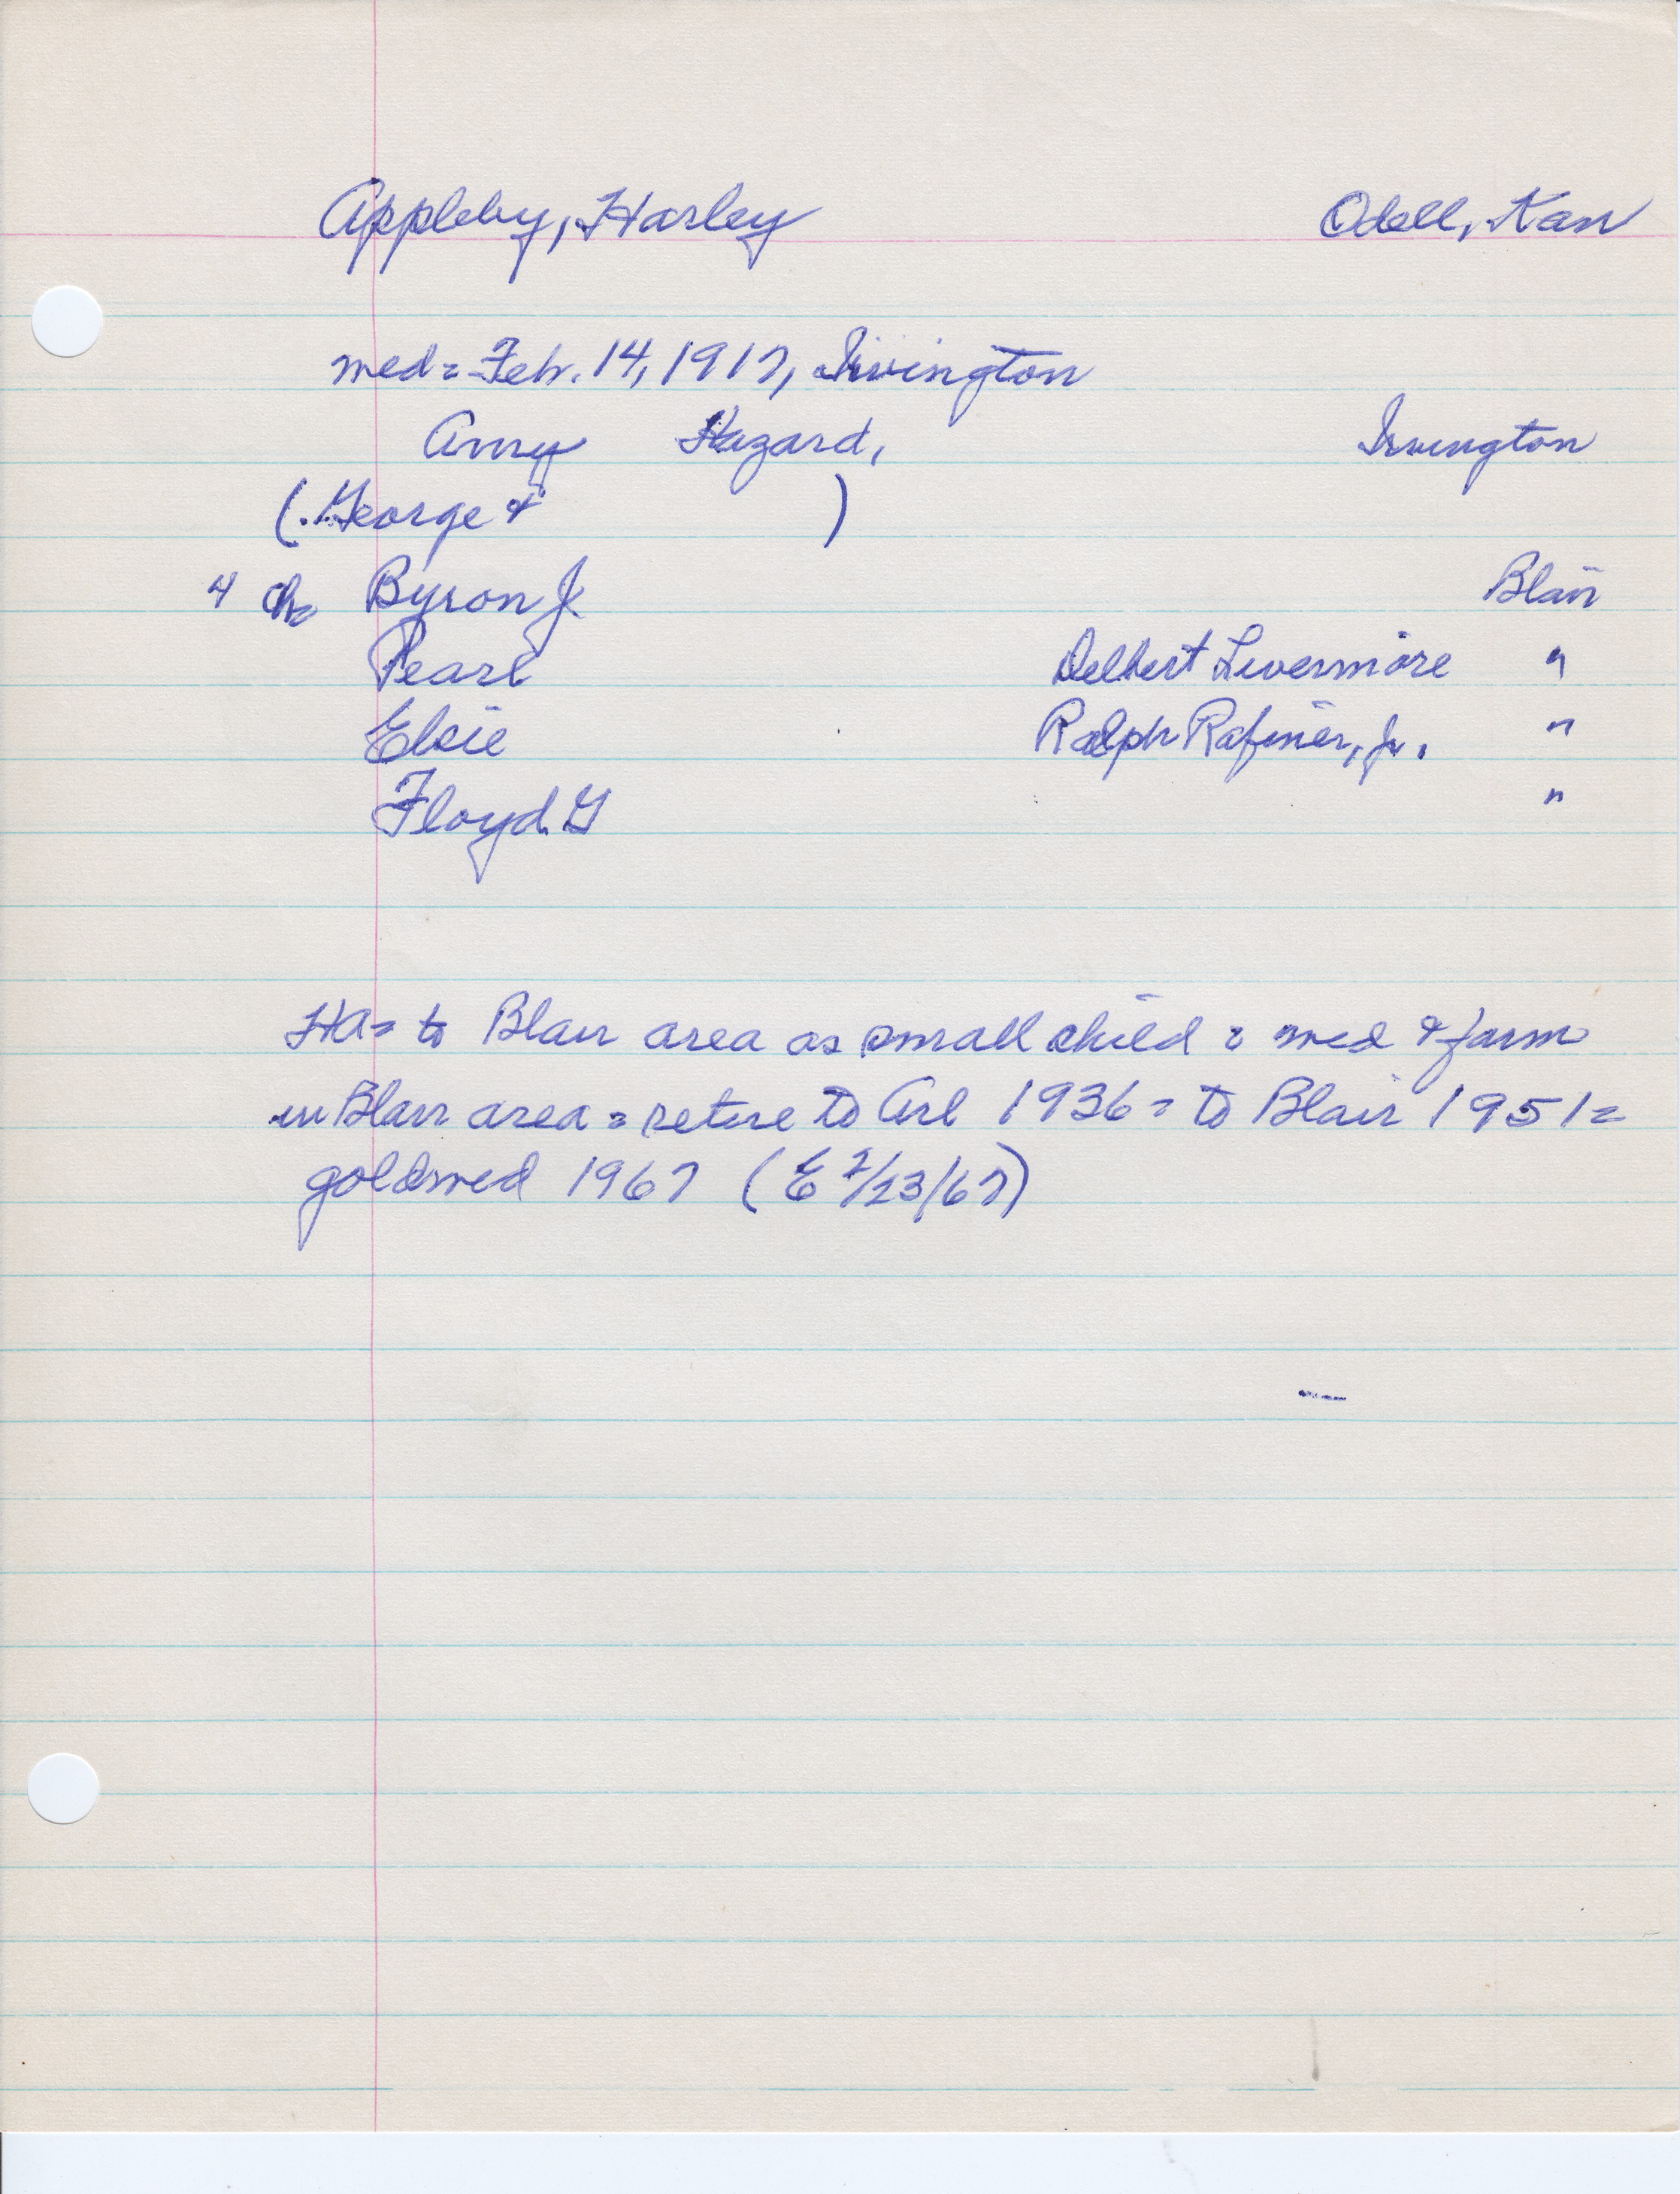 Appleby, Harley Odell, Kan
wed = Feb. 14, 1917, Irvington
Amy Hazard, Irvington
(George & )
4 ch = Byron J. Blair
Pearl Delbert Livermore "
Elsie Ralph Rafiner, Jr. "
Floyd G "
HA = to Blair area as small child = wed & farm
in Blair area = retire to Arl 1936 = to Blair 1951 =
goldwed 1967 (E 2/23/67)